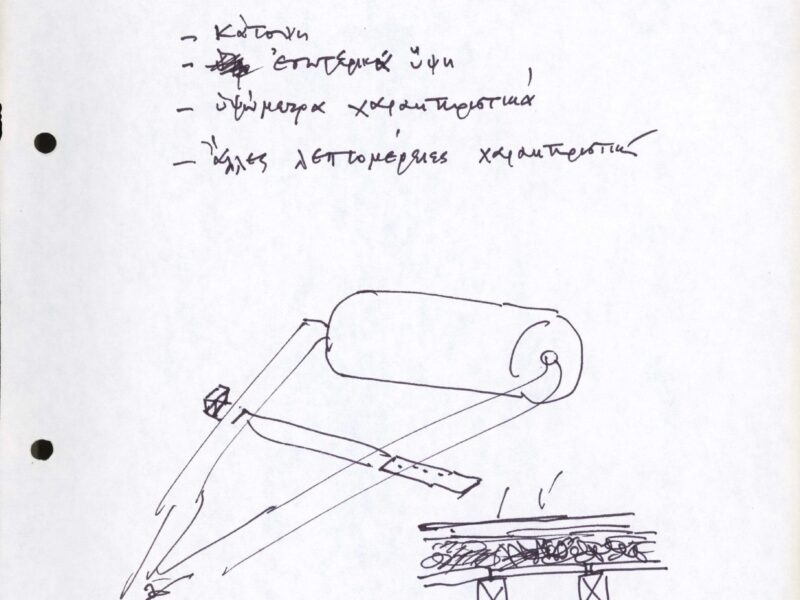 - Κάτοψη
- ἐσωτερικά ὕψη
- ὑψώμετρα χαρακτηριστικά
- Ἄλλες λεπτομέρειες χαρακτηριστικ